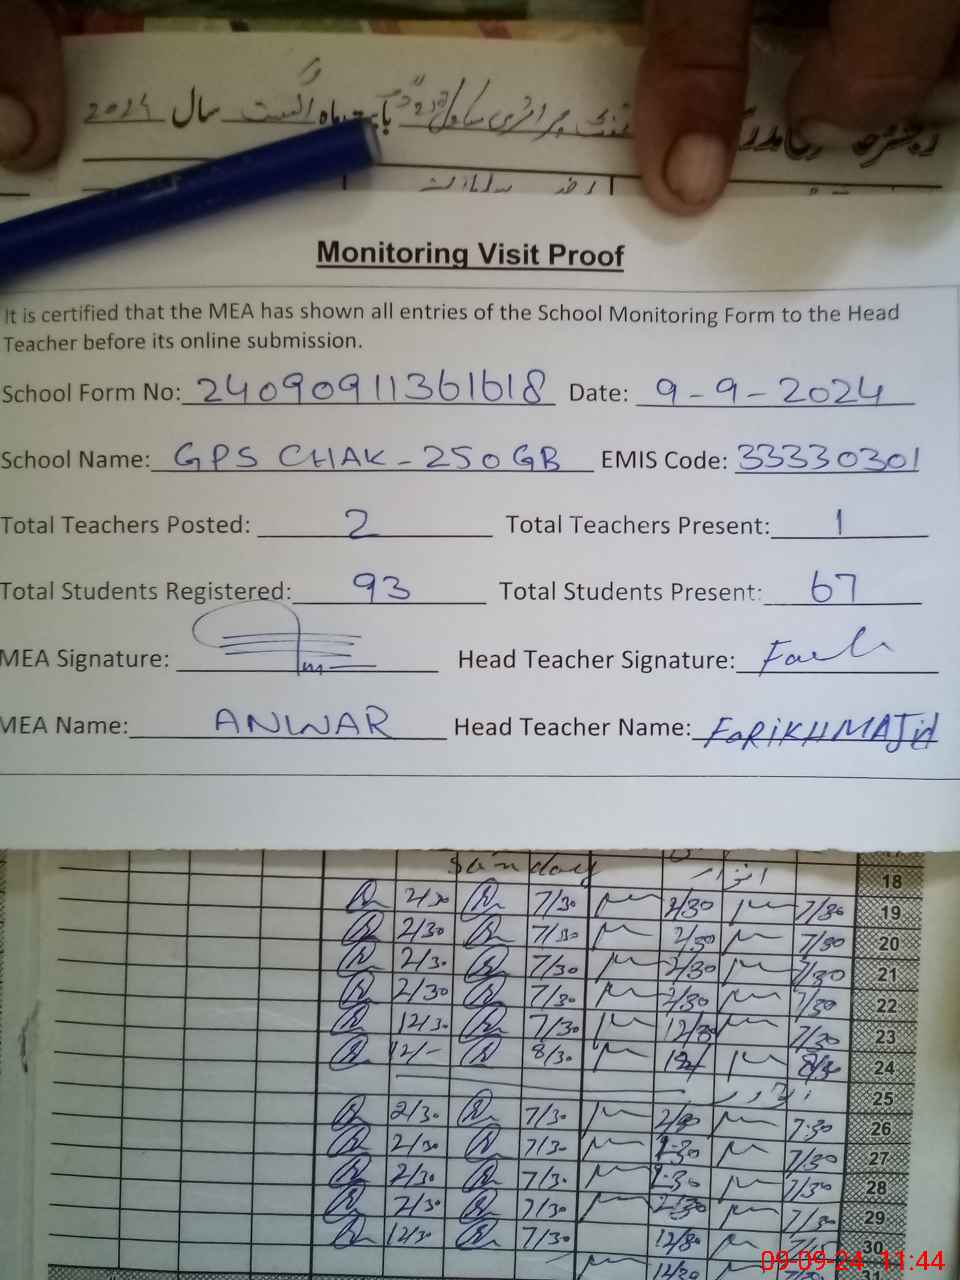 سال 2024
Monitoring Visit Proof
It is certified that the MEA has shown all entries of the School Monitoring Form to the Head
Teacher before its online submission.
School Form No: 24090911361618 Date: 9-9-2024
School Name: GPS CHAK-250GB EMIS Code: 33330301
Total Teachers Posted: 2 Total Teachers Present: 1
Total Students Registered: 93 Total Students Present: 67
MEA Signature: Head Teacher Signature:
MEA Name: ANWAR Head Teacher Name: FaRIKHMAJid
Sunday اتوار 18
2/30 7/30 2/30 7/30 19
2/30 7/30 2/30 7/30 20
2/30 7/30 2/30 7/30 21
2/30 7/30 2/30 7/30 22
12/30 7/30 12/30 7/30 23
12/- 8/30 24
اتوار 25
2/30 7/30 7:30 26
2/30 7/30 2:30 7/30 27
2/30 7/30 2:30 7/30 28
2/30 7/30 2/30 7/30 29
12/30 7/30 12/30 30
12/30 31
09-09-24 11:44